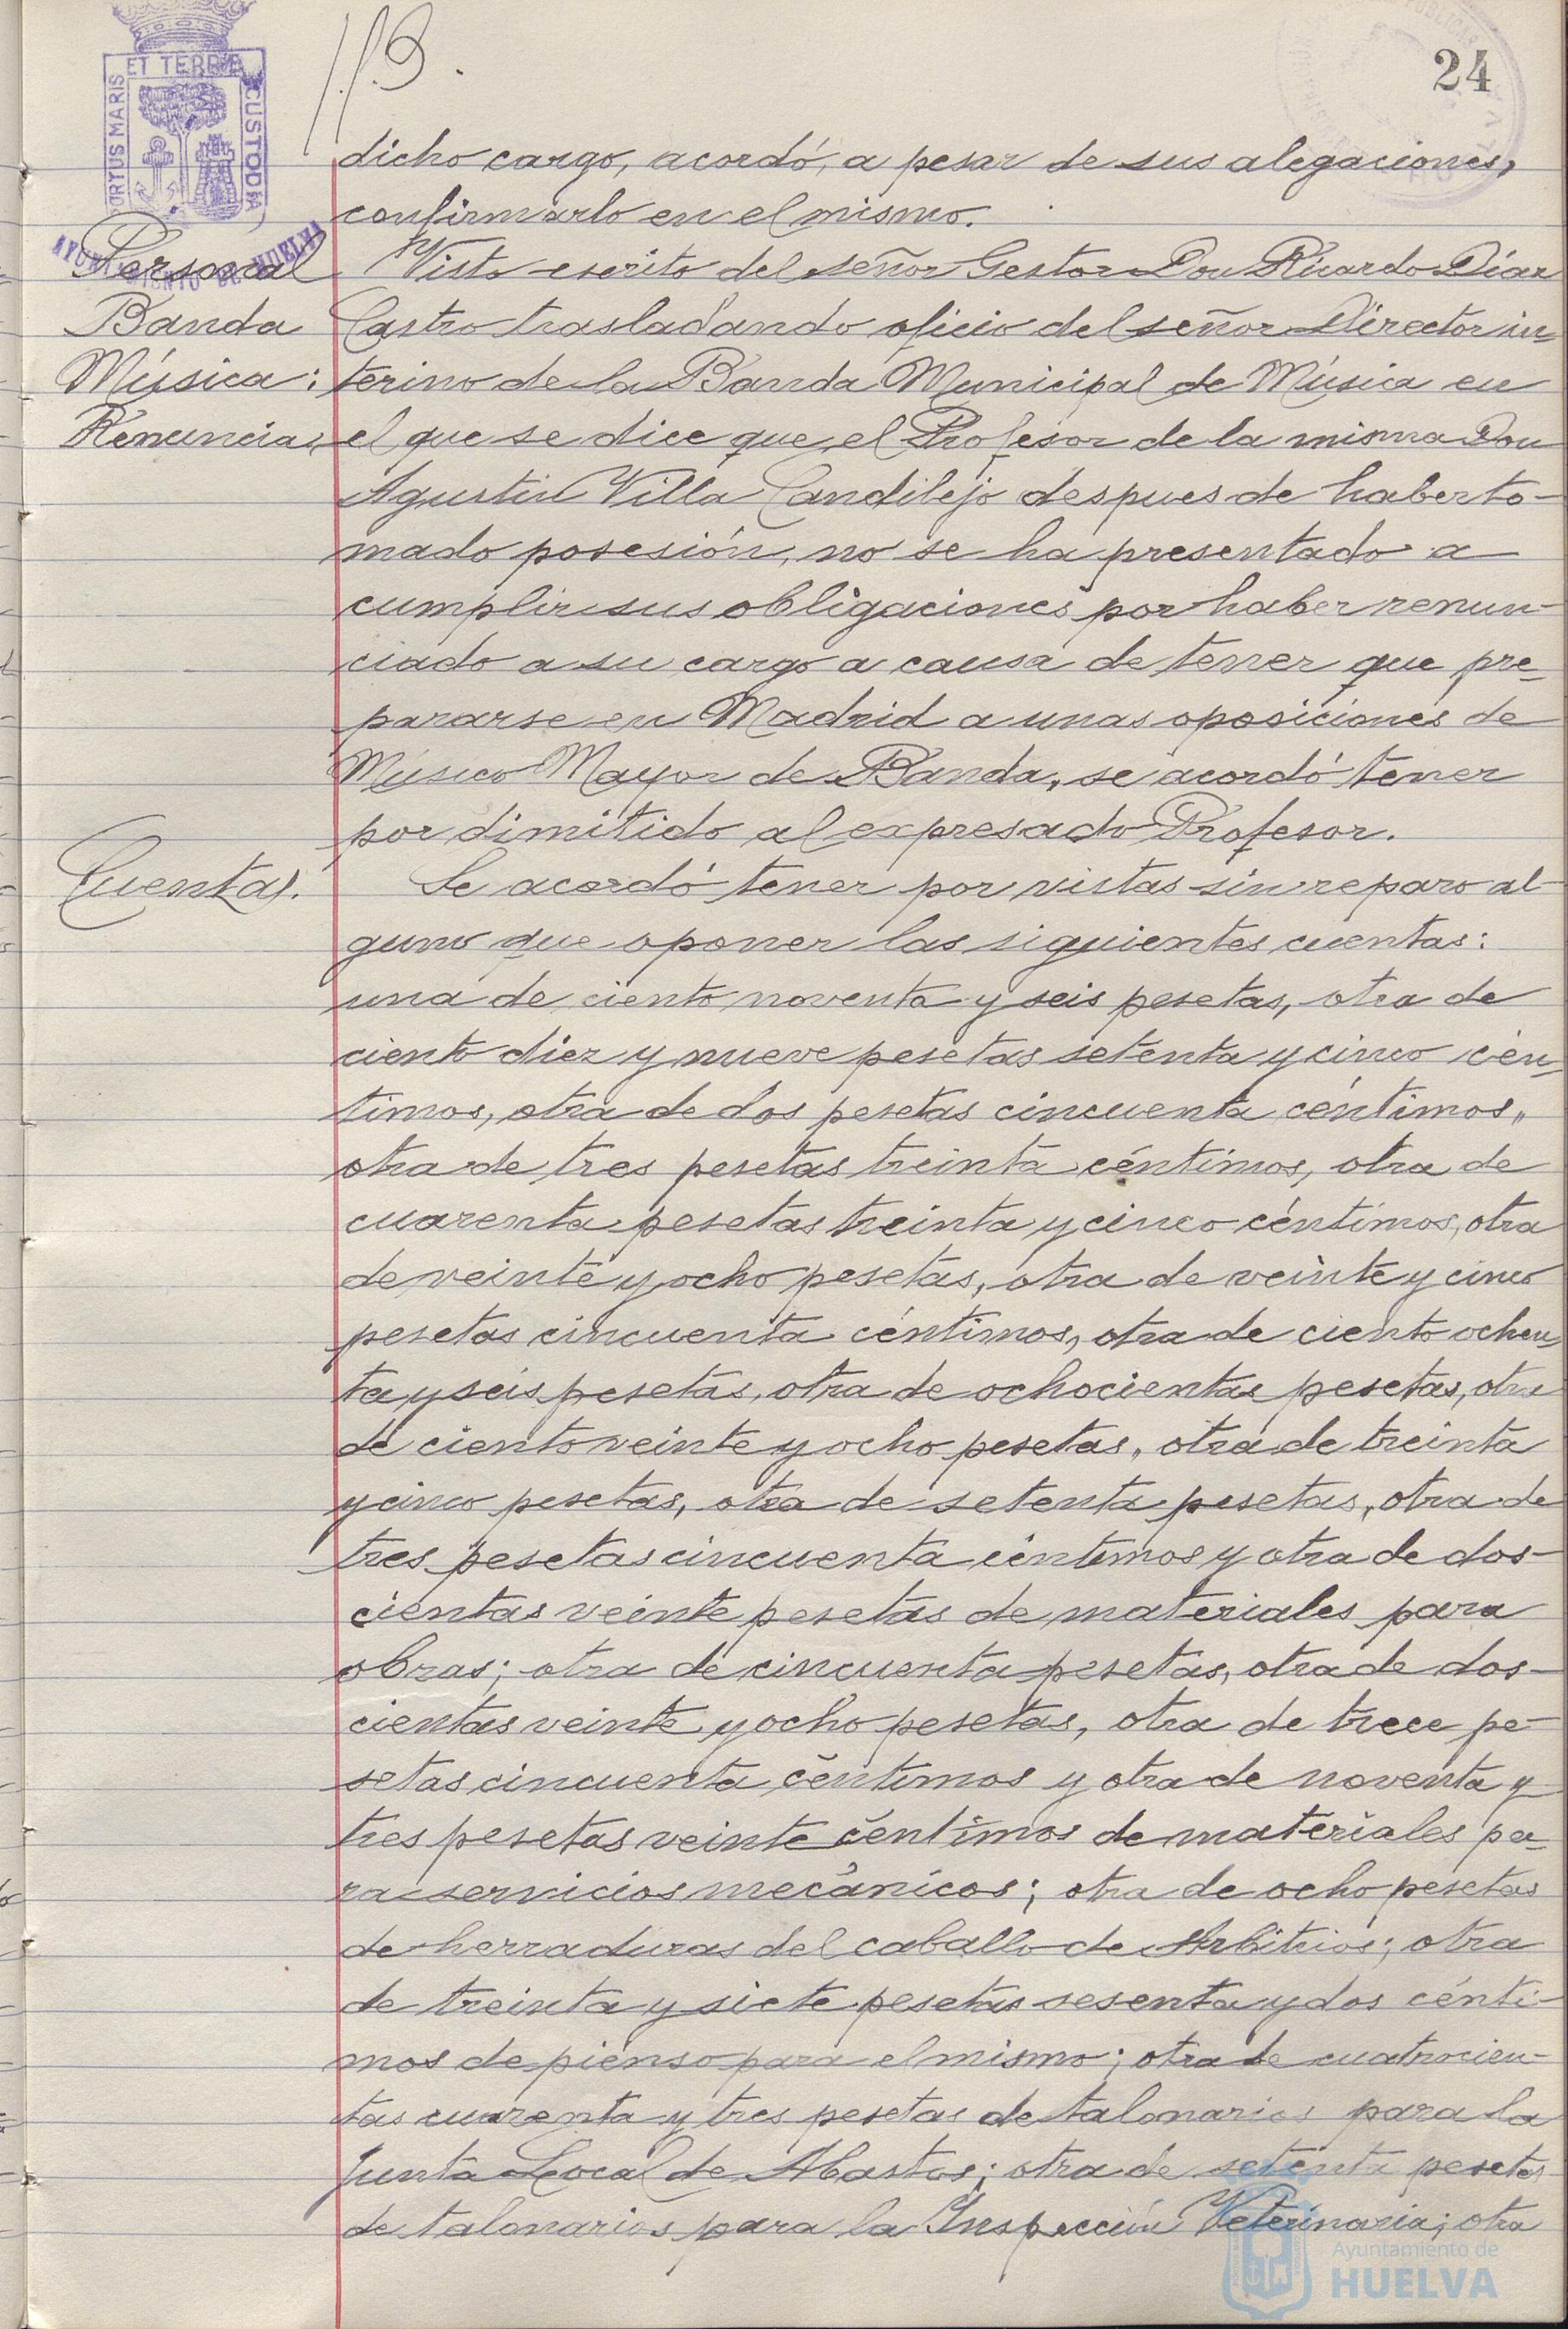 24
PORTUS MARIS
ET TERRÆ
CUSTODIA
AYUNTAMIENTO DE HUELVA
dicho cargo, acordó, a pesar de sus alegaciones,
confirmarlo en el mismo.
Personal
Banda
Música:
Renuncia.
Visto escrito del señor Gestor Don Ricardo Díaz
Castro trasladando oficio del señor Director in-
terino de la Banda Municipal de Música en
el que se dice que el Profesor de la misma Don
Agustín Villa Candilejo despues de haber to-
mado posesión, no se ha presentado a
cumplir sus obligaciones por haber renun-
ciado a su cargo a causa de tener que pre-
pararse en Madrid a unas oposiciones de
Músico Mayor de Banda, se acordó tener
por dimitido al expresado Profesor.
Cuentas.
Se acordó tener por vistas sin reparo al-
guno que oponer las siguientes cuentas:
una de ciento noventa y seis pesetas, otra de
ciento diez y nueve pesetas setenta y cinco cén-
timos, otra de dos pesetas cincuenta céntimos,
otra de tres pesetas treinta céntimos, otra de
cuarenta pesetas treinta y cinco céntimos, otra
de veinte y ocho pesetas, otra de veinte y cinco
pesetas cincuenta céntimos, otra de ciento ochen-
ta y seis pesetas, otra de ochocientas pesetas, otra
de ciento veinte y ocho pesetas, otra de treinta
y cinco pesetas, otra de setenta pesetas, otra de
tres pesetas cincuenta céntimos y otra de dos-
cientas veinte pesetas de materiales para
obras; otra de cincuenta pesetas, otra de dos-
cientas veinte y ocho pesetas, otra de trece pe-
setas cincuenta céntimos y otra de noventa y
tres pesetas veinte céntimos de materiales pa-
ra servicios mecánicos; otra de ocho pesetas
de herraduras del caballo de Arbitrios; otra
de treinta y siete pesetas sesenta y dos cénti-
mos de pienso para el mismo; otra de cuatrocien-
tas cuarenta y tres pesetas de talonarios para la
Junta Local de Abastos; otra de setenta pesetas
de talonarios para la Inspección Veterinaria; otra
Ayuntamiento de
HUELVA